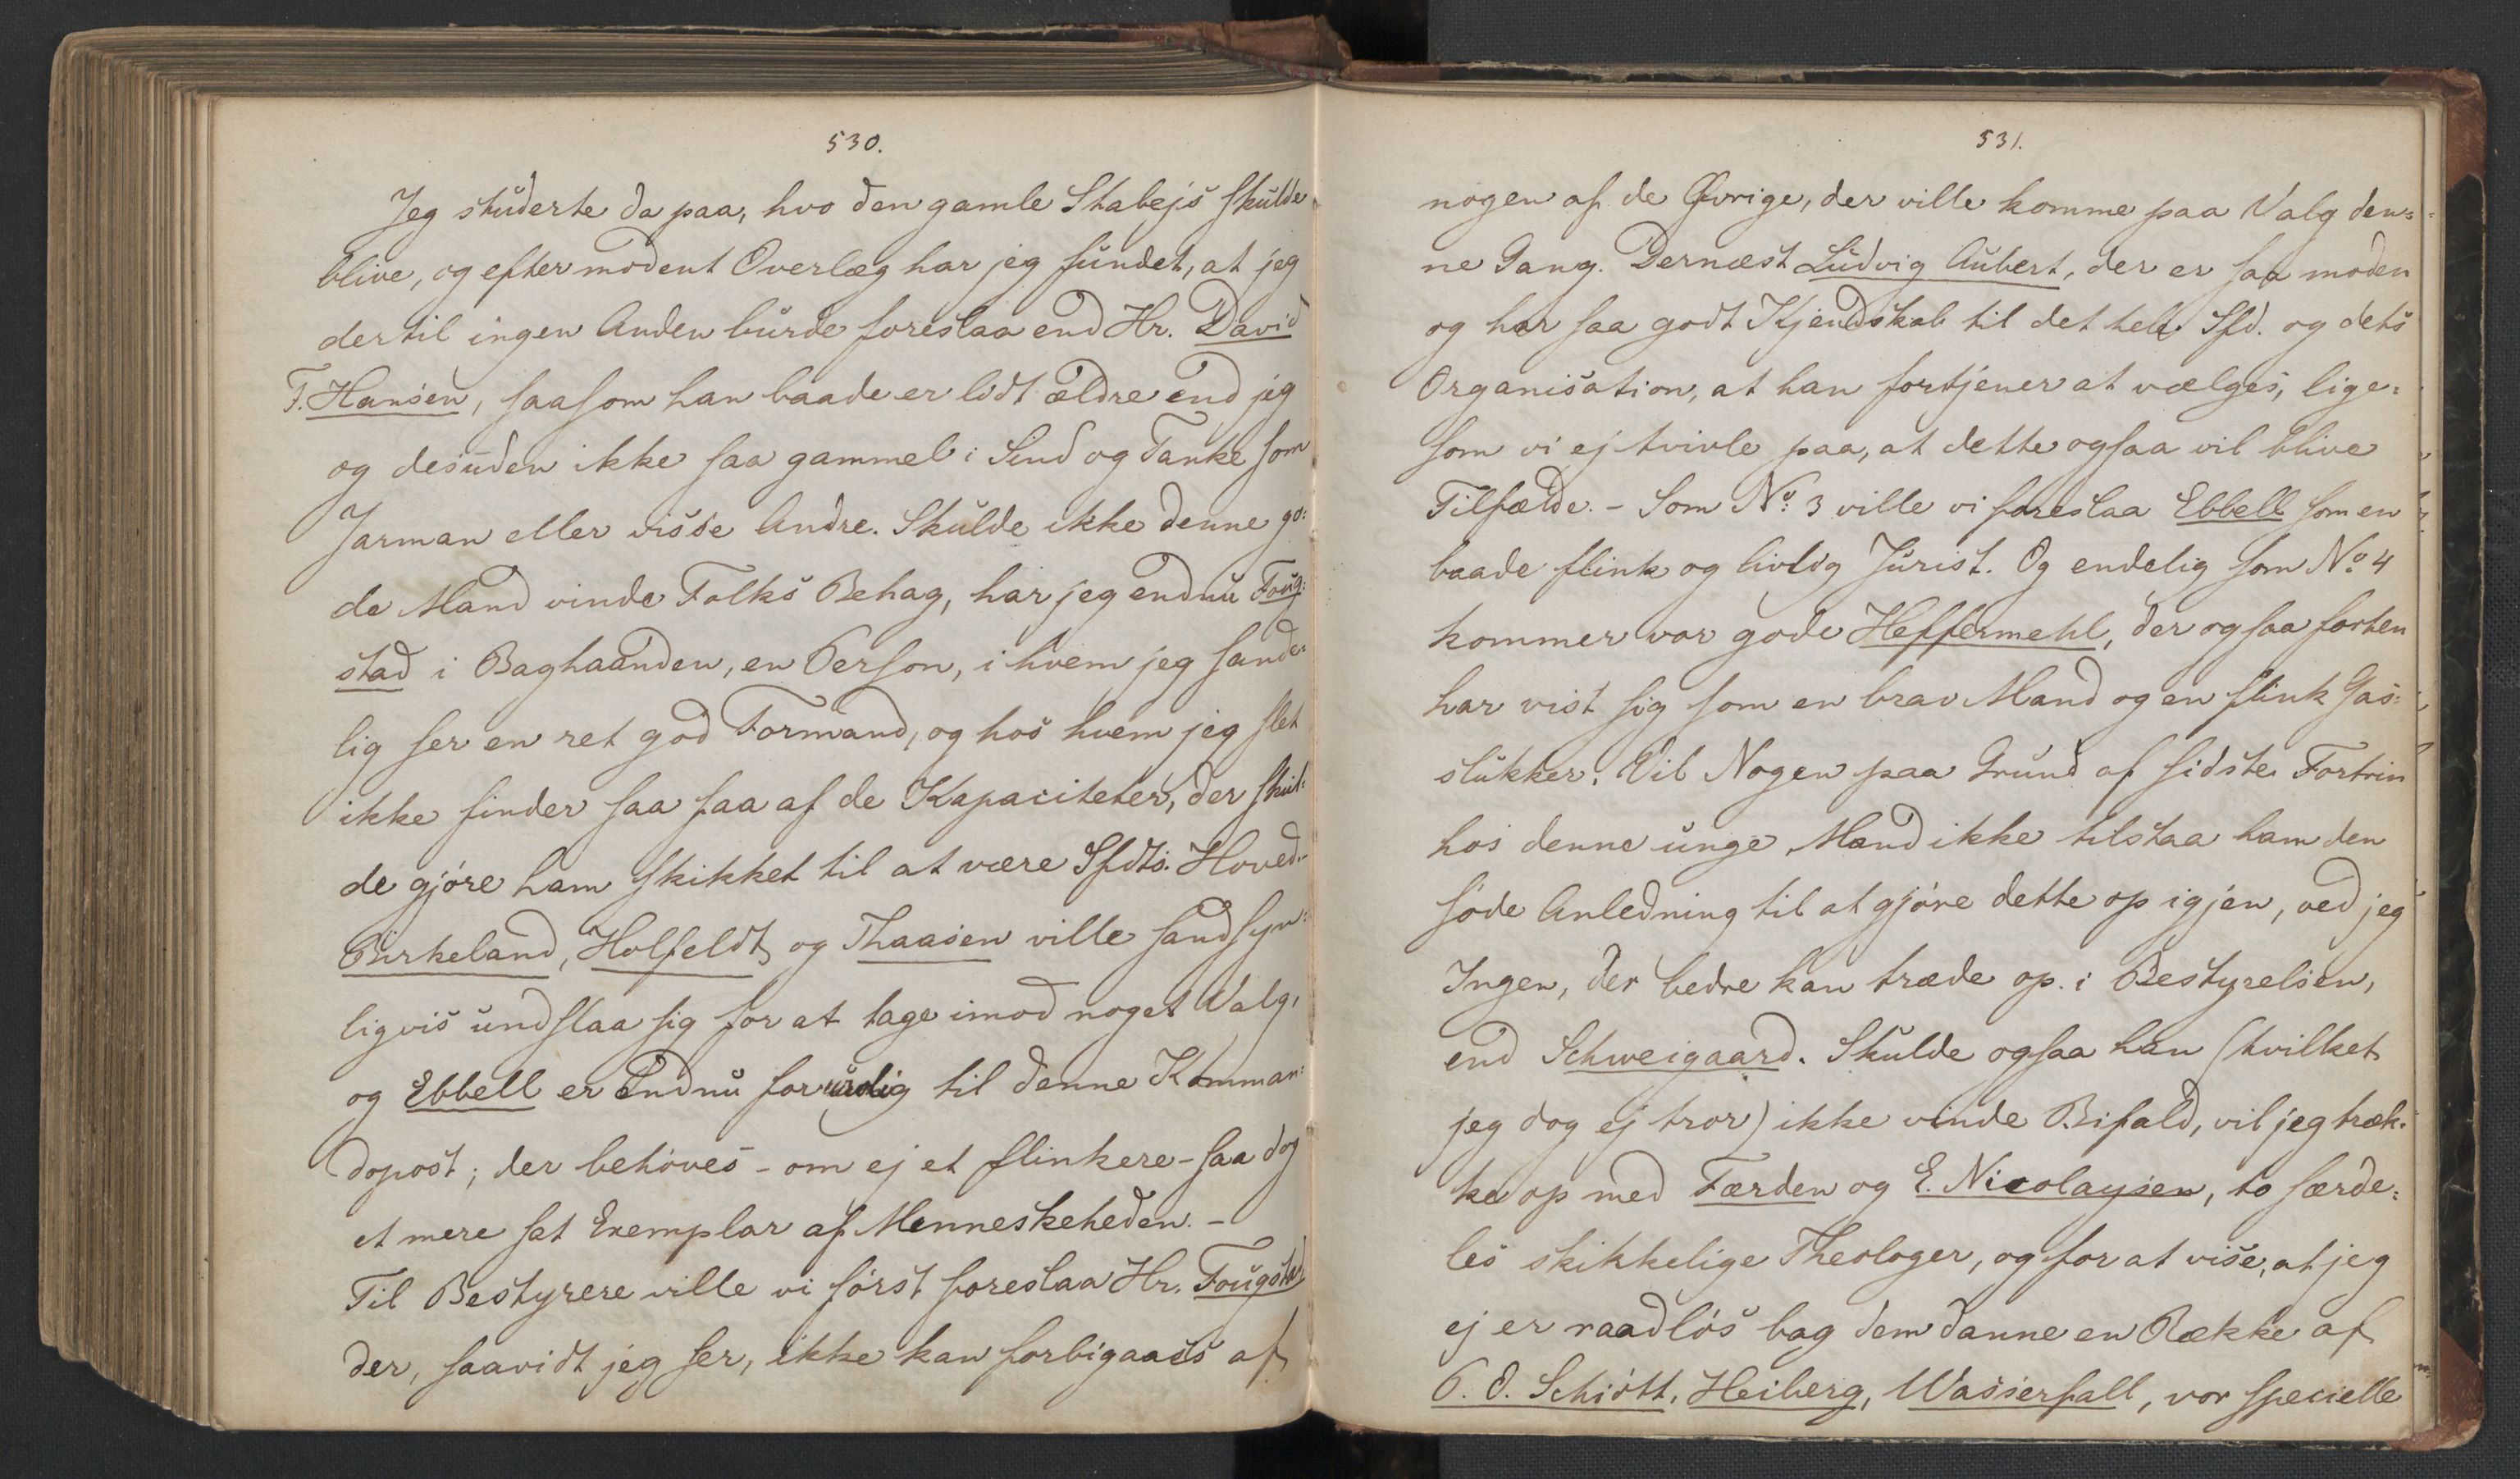 530.
Jeg studerte da paa, hvo den gamle Stabejs skulde
blive, og efter modent Overlæg har jeg fundet, at jeg
dertil ingen Anden burde foreslaa end Hr. David
F. Hansen, saasom han baade er lidt ældre end jeg
og desuden ikke saa gammel i Sind og Tanke som
Jarman eller visse Andre. Skulde ikke denne go=
de Mand vinde Folks Behag, har jeg endnu Foug=
stad i Baghaanden, en Person, i hvem jeg sande=
lig ser en ret god Formand, og hos hvem jeg slet
ikke finder saa faa af de Kapaciteter, der skul=
de gjøre ham skikket til at være Sfdts. Hoved.
Birkeland, Holfeldt og Thaasen ville sandsyn=
ligvis undslaa sig for at tage imod noget Valg,
og Ebbell er Endnu for urolig til denne Komman=
dopost; der behøves – om ej et flinkere – saa dog
et mere sat Exemplar af Menneskeheden. –
Til Bestyrere ville vi først foreslaa Hr. Fougstad
der, saavidt jeg ser, ikke kan forbigaaes af
531.
nogen af de Øvrige, der ville komme paa Valg den=
ne Gang. Dernæst Ludvig Aubert, der er saa moden
og har saa godt Kjendskab til det hele Sfd. og dets
Organisation, at han fortjener at vælges, lige=
som vi ej tvivle paa, at dette ogsaa vil blive
Tilfælde. – Som No. 3 ville vi foreslaa Ebbell som en
baade flink og livlig Jurist. Og endelig som No. 4
kommer vor gode Heffermehl, der ogsaa forhen
har vist sig som en brav Mand og en flink Gas=
slukker. Vil Nogen paa Grund af sidste Fortrin
hos denne unge Mand ikke tilstaa ham den
søde Anledning til at gjøre dette op igjen, ved jeg
Ingen, der bedre kan træde op i Bestyrelsen,
end Schweigaard. Skulde ogsaa han (hvilket
jeg dog ej tror) ikke vinde Bifald, vil jeg træk=
ke op med Færden og E. Nicolaysen, to særde=
les skikkelige Theologer, og for at vise, at jeg
ej er raadløs bag dem danne en Række af
P. O. Schiøtt, Heiberg, Wasserfall, vor specielle